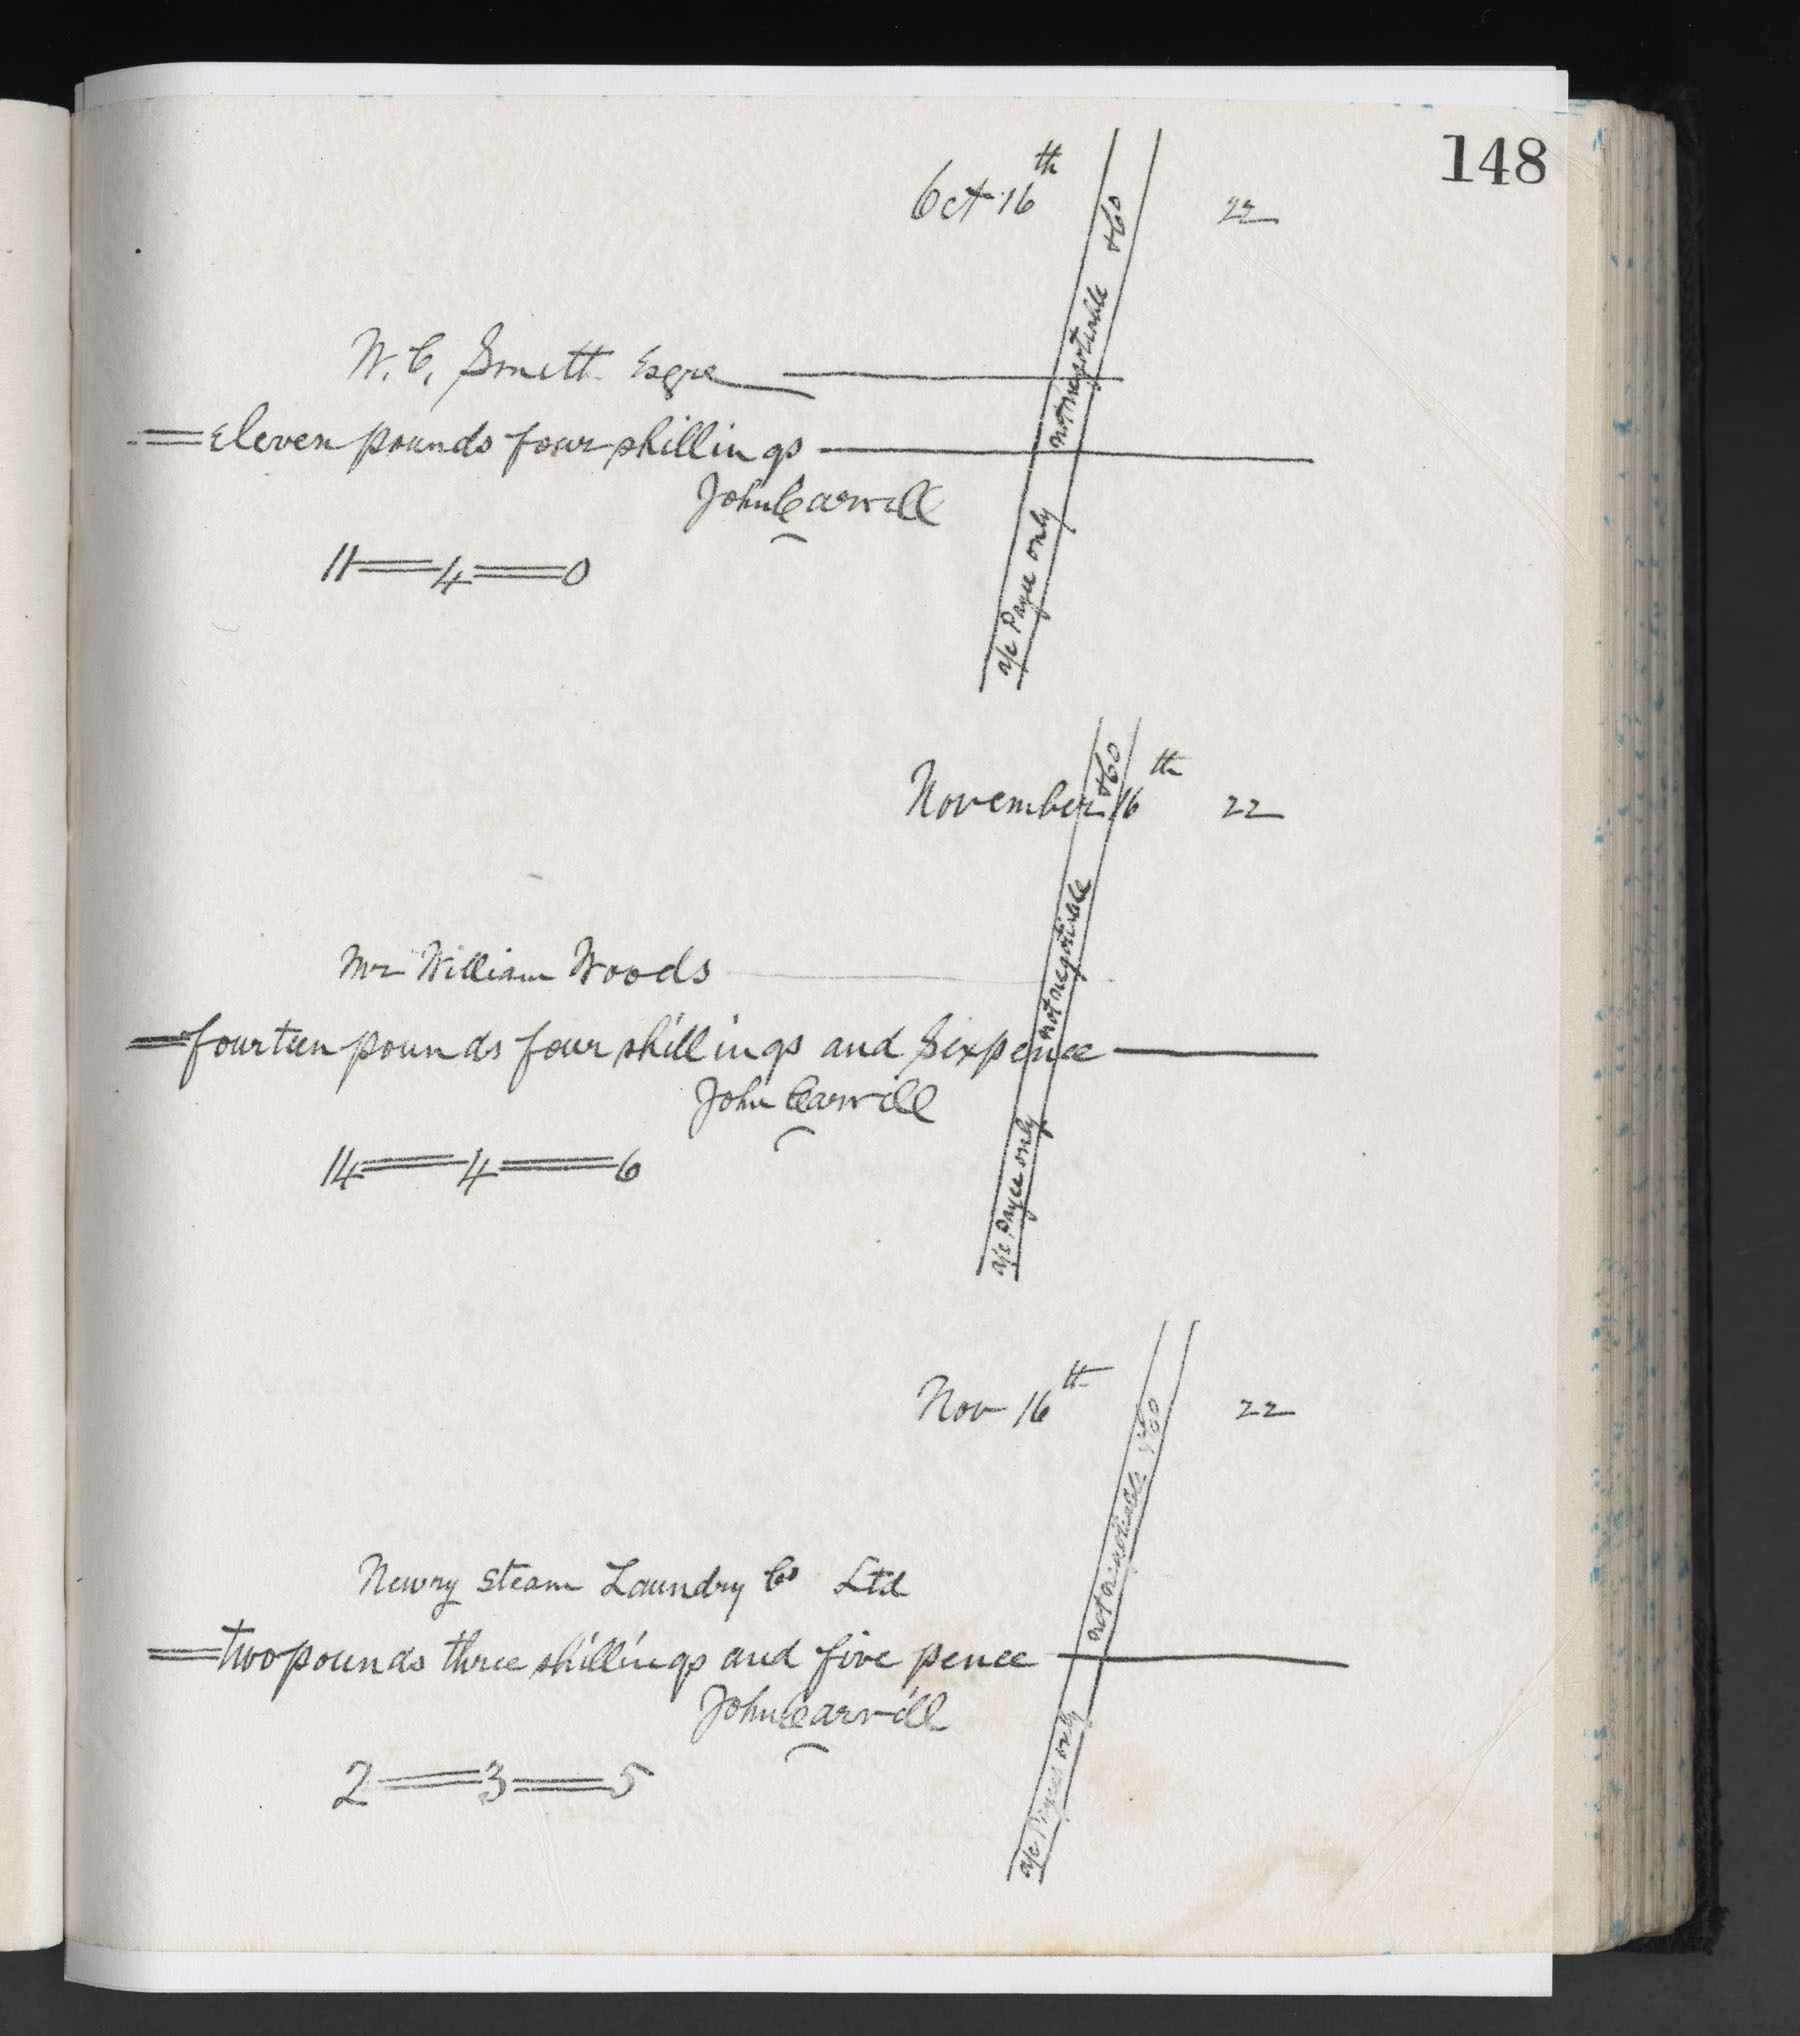 148
Oct 16th 22
& Co
not negotiable
a/c Payee only
W. C. Smith Esqre
eleven pounds four shillings
John Carvill
11 4 0
November 16th 22
& Co
not negotiable
a/c Payee only
Mr William Woods
fourteen pounds four shillings and sixpence
John Carvill
14 4 6
Nov 16th 22
& Co
not negotiable
a/c Payees only
Newry Steam Laundry Co Ltd
two pounds three shillings and five pence
John Carvill
2 3 5